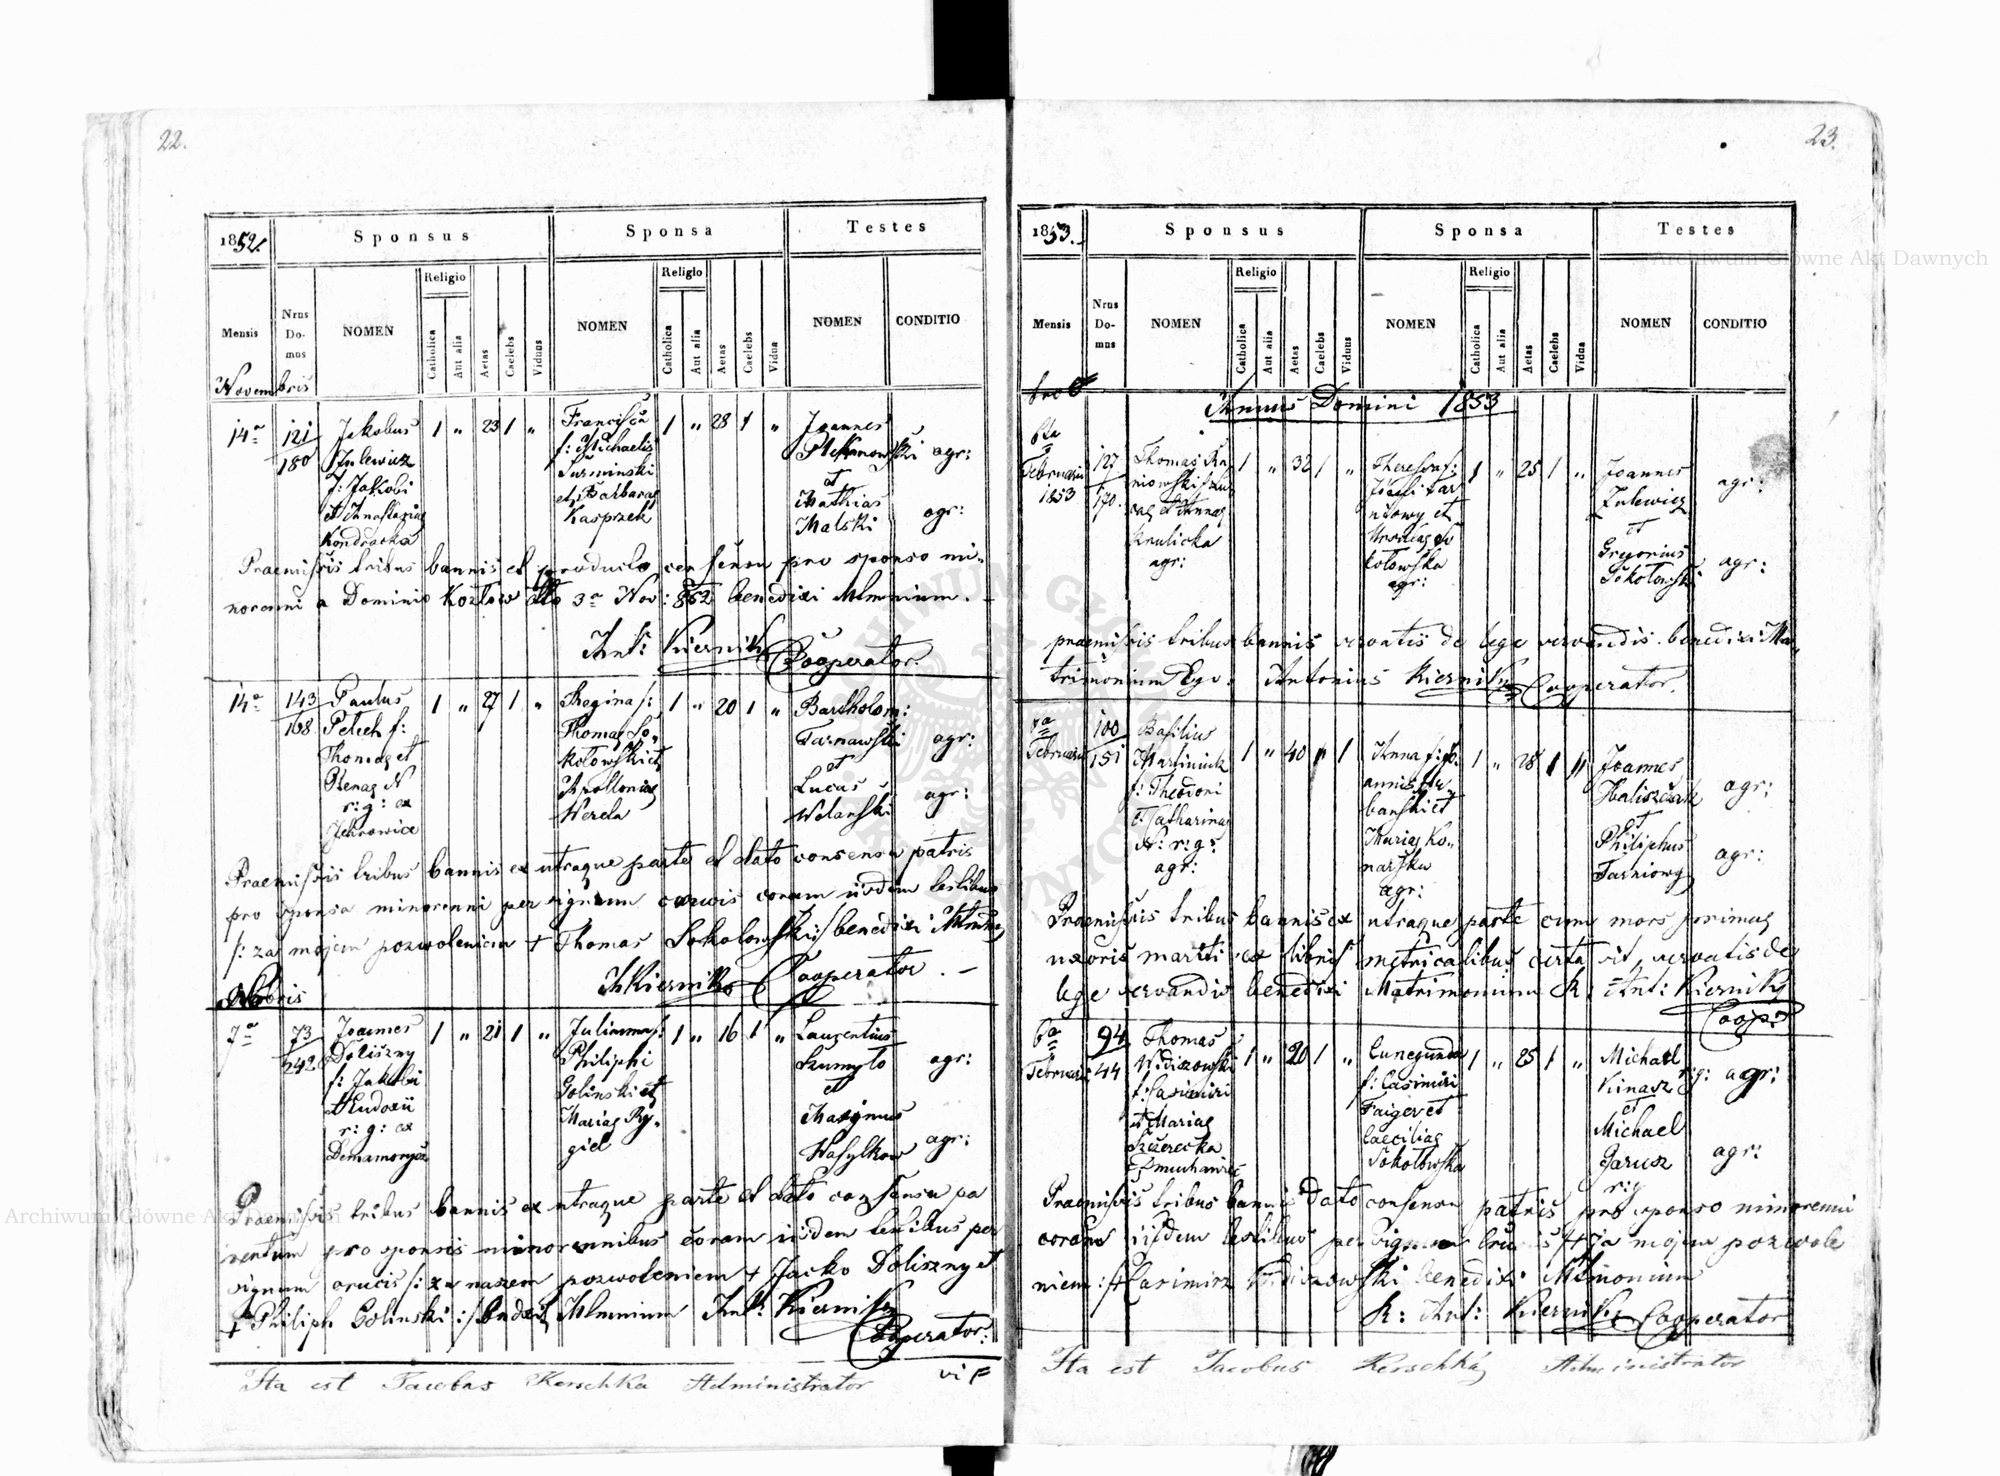 22.
1852.
Sponsus
Sponsa
Testes
Mensis
Nrus Do-mus
NOMEN
Religio
Catholica
Aut alia
Aetas
Caelebs
Viduus
NOMEN
Religio
Catholica
Aut alia
Aetas
Caelebs
Vidua
NOMEN
CONDITIO
Novembris
14a
121
180
Jakobus
Julewicz
f: Jakobi
et Anastaziae
Kondracka
1 " 23 1 "
Francisca
f: Michaelis
Surminski
et Barbarae
Kasprzek
1 " 28 1 "
Joannes
Stefanowski agr:
et
Mathias
Malski agr:
Praemissis tribus bannis et producto consensu pro sponso mi-
norenni a Dominio Kozłow dto 3a Nov: 852 benedixi Mtmnium. -
Ant: Kiernik Cooperator.
14a
143
168
Paulus
Petech f:
Thomae et
Renae N
r: g: ex
Jehrowice
1 " 27 1 "
Regina f:
Thomae So-
kołowski et
Apolloniae
Werela
1 " 20 1 "
Bartholom:
Tarnawski agr:
et
Lucas
Wolanski agr:
Praemissis tribus bannis ex utraque parte et dato consensu patris
pro sponsa minorenni per signum crucis coram iisdem testibus
/: za mojem pozwoleniem + Thomas Sokolowski:/ benedixi
AKiernik Cooperator. -
7a
73
242
Joannes
Doliszny
f: Jakobi
et Eudoxii
r: g: ex
Denamorycz
1 " 21 1 "
Julianna f:
Philiphi
Golinski et
Mariae Ry-
giel
1 " 16 1 "
Laurentius
Szumyło agr:
et
Maxymus
Wasylkow agr:
Praemissis tribus bannis ex utraque parte et dato consensu pa
rentum pro sponsis minorennibus coram iisdem testibus per
signum crucis /: za naszem pozwoleniem + Jacko Doliszny et
+ Philiph Golinski :/ bndxi Mtmnium Ant: Kiernik
Cooperator:
Ita est Jacobus Kerschka Administrator
vi F
23.
1853.
Sponsus
Sponsa
Testes
Mensis
Nrus Do-mus
NOMEN
Religio
Catholica
Aut alia
Aetas
Caelebs
Viduus
NOMEN
Religio
Catholica
Aut alia
Aetas
Caelebs
Vidua
NOMEN
CONDITIO
Annus Domini 1853
6ta
Februarii
1853
127
170.
Thomas Ra
niowski f: Lu
cae et Annae
Krulicka
agr:
1 " 32 1 "
Theressa f:
Josefi Tar
nowy et
kołowska
agr:
1 " 25 1 "
Joannes
Julewicz agr:
et
Gregorius
Sokołowski agr:
praemissis tribus bannis servatis de lege servandis benedixi Ma-
trimonium Ego: Antonius Kiernik Cooperator.
6a
Februarii
100
151
Basilius
Martiniuk
f: Theodori
et Catharinae
N: r: g:
agr:
1 " 40 " 1
Anna f: Jo-
annis
banski et
Mariae Ko-
narska
agr:
1 " 28 1 "
Joannes
Haliszczak agr:
et
Philiphus
Tasniowy agr:
Praemissis tribus bannis ex utraque parte cum mors primae
uxoris mariti ex libris metricalibus certa sit, servatis de
lege servandis benedixi Matrimonium R: Ant: Kiernik
Coopr
6a
Februarii
94
44
Thomas
Widiszowski
f: Casimiri
et Mariae
Szczerecka
1 " 20 1 "
Cunegunda
f: Casimiri
Faiger et
Caeciliae
Sokołowska
1 " 25 1 "
Michael
Kinasz r: g: agr:
et
Michael
Garusz agr:
r: g
Praemissis tribus bannis dato consensu patris pro sponso minorenni
coram iisdem testibus per signum Crucis /+ Za mojem pozwole
niem :/+ Casimirz Widiszowski benedixi Mtmonium
R: Ant: Kiernik Cooperator
Ita est Jacobus Kerschka Administrator
Archiwum Główne Akt Dawnych
Archiwum Główne Akt Dawnych